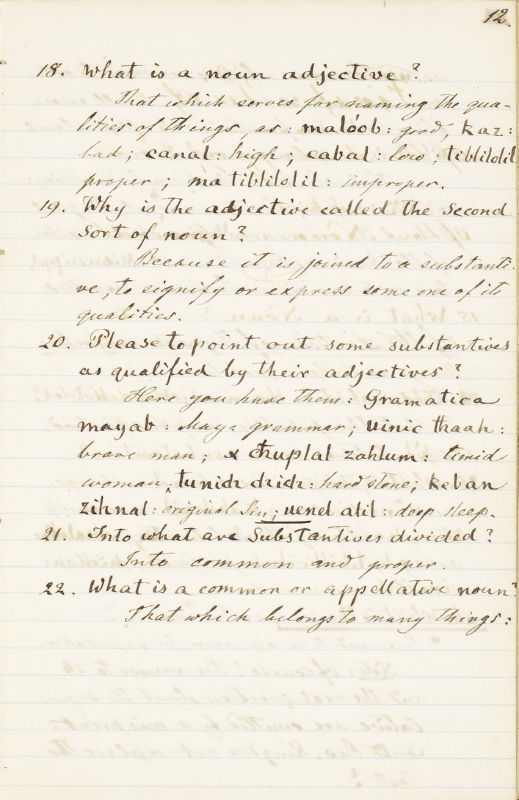 12.
18. What is a noun adjective?
That which serves for naming the qua-
lities of things, as: malóob: good, kaz:
bad; canal: high; cabal: low; tiblilolil
proper; ma tiblilolil: improper.
19. Why is the adjective called the second
sort of noun?
Because it is joined to a substanti-
ve, to signify or express some one of its
qualities.
20. Please to point out some substantives
as qualified by their adjectives?
Here you have them: Gramatica
mayab: Maya grammar; uinic thaah:
brave man; x chuplal zahlum: timid
woman, tunich chich: hard stone; keban
zihnal: original Sin; uenel alil: deep sleep.
21. Into what are Substantives divided?
Into common and proper.
22. What is a common or appellative noun?
That which belongs to many things: